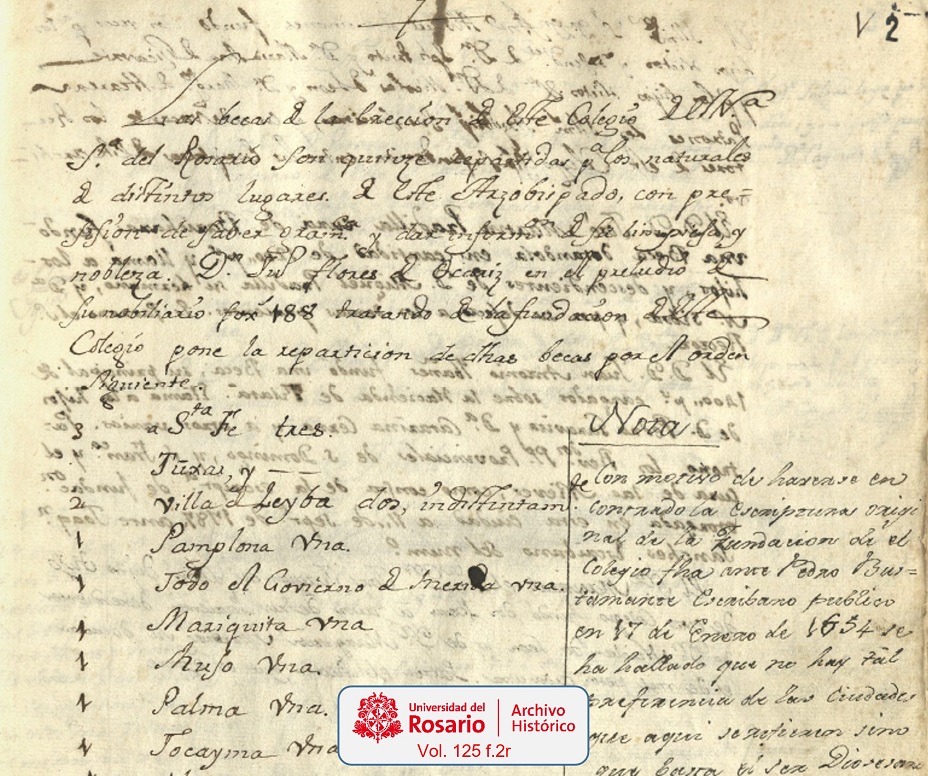 V 2
Las becas de la ereccion de Este Colegio de N.ª
S.ª del Rosario son quinze repartidas p.ª los naturales
de distintos lugares de Este Arzobispado, con pre=
sision de saber gram.ca y dar inform.n de su limpiesa y
nobleza. D.n Ju.º flores de Ocariz en el preludio de
su nobiliario fox 188 tratando de la fundacion de Este
Colegio pone la reparticion de dhas becas por el orden
siguiente.
3 a S.ta Fe tres.
Tunxa, y
2 Villa de Leyba dos, indistintam.te
1 Pamplona Vna.
1 Todo el Govierno de Merida vna.
1 Mariquita Vna
1 Muso Vna.
1 Palma Vna.
1 Tocayma Vna
Nota.
Con motivo de haverse en
contrado la Escriptura origi
nal de la Fundacion de el
Colegio fha ante Pedro Bus=
tamante Escribano publico
en 17 de Enero de 1654 se
ha hallado que no hay tal
preferencia de las Ciudades
que aqui se refieren sino
que basta el ser Diosesano
Universidad del
Rosario
Archivo
Histórico
Vol. 125 f.2r